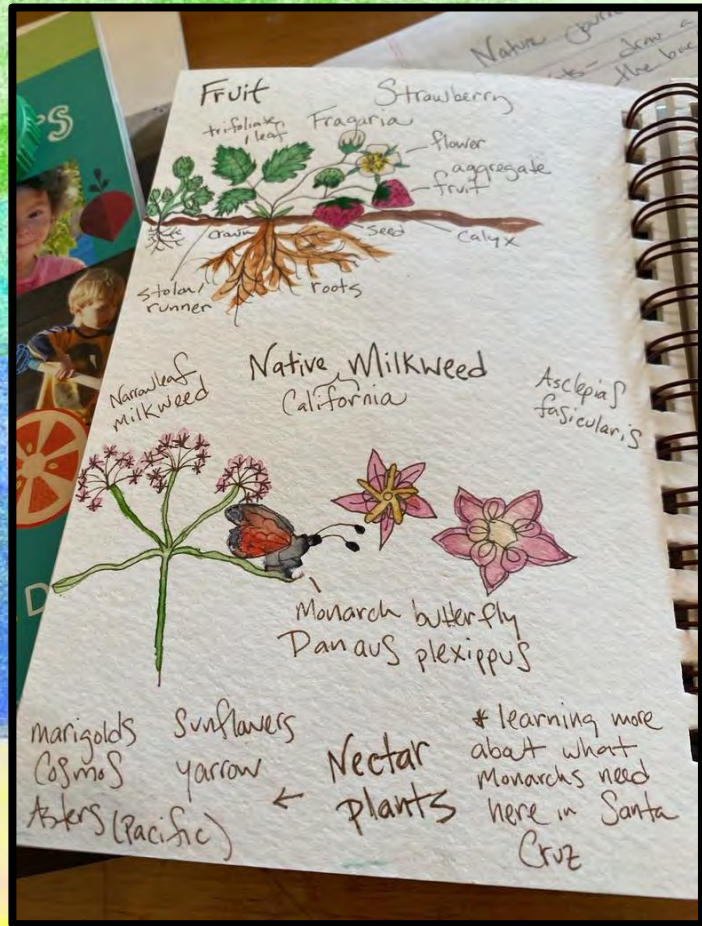 Nature
draw a
the bac
Fruit
Strawberry
trifoliate
leaf
Fragaria
flower
aggregate
fruit
crown
seed
calyx
stolon/
runner
roots
Narrowleaf
Milkweed
Native Milkweed
California
Asclepias
fasicularis
Monarch butterfly
Danaus plexippus
marigolds
Cosmos
Asters (Pacific)
Sunflowers
yarrow
← Nectar
plants
* learning more
about what
Monarchs need
here in Santa
Cruz